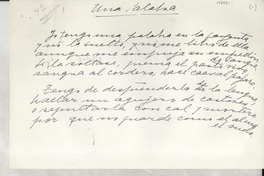 Una Palabra
Yo tengo una palabra en la garganta
y no la suelto, y no me libro de ella
aunque me empuja su empellón de sangre.
Si la soltase, quema el pasto vivo,
sangra al cordero, hace caer al pájaro.
Tengo que desprenderla de mi lengua,
hallar un agujero de castores
o sepultarla con cal y mortero
porque no guarde como el alma
el vuelo